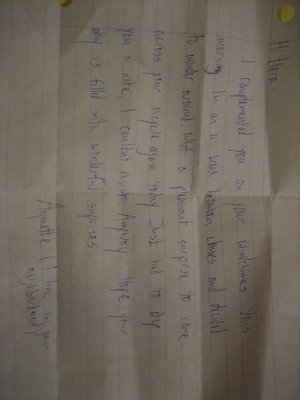 Hi there -
I complemented you on your windchimes this
morning. I'm on a break between classes and decided
to wander around. What a pleasant surprise to come
across your bicycle again today. Just had to drop
you a note, I couldn't resist. Anyway, hope your
day is filled with wonderful surprises.
(I live in your
neighborhood)